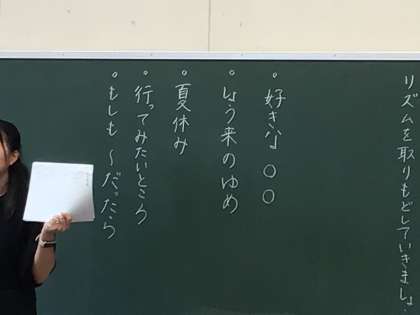 リズムを取りもどしていきましょう
・好きな○○
・しょう来のゆめ
・夏休み
・行ってみたいところ
・もしも〜だったら